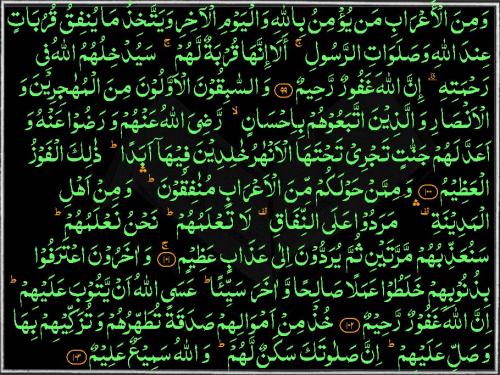 وَمِنَ الْاَعْرَابِ مَنْ يُّؤْمِنُ بِاللّٰهِ وَالْيَوْمِ الْاٰخِرِ وَيَتَّخِذُ مَا يُنْفِقُ قُرُبٰتٍ
عِنْدَ اللّٰهِ وَصَلَوٰتِ الرَّسُوْلِ ۚ اَلَاۤ اِنَّهَا قُرْبَةٌ لَّهُمْ ۚ سَيُدْخِلُهُمُ اللّٰهُ فِىْ
رَحْمَتِهٖ ؕ اِنَّ اللّٰهَ غَفُوْرٌ رَّحِيْمٌ ﴿۹۹﴾ وَالسّٰبِقُوْنَ الْاَوَّلُوْنَ مِنَ الْمُهٰجِرِيْنَ وَ
الْاَنْصَارِ وَالَّذِيْنَ اتَّبَعُوْهُمْ بِاِحْسَانٍ ۙ رَّضِىَ اللّٰهُ عَنْهُمْ وَرَضُوْا عَنْهُ وَ
اَعَدَّ لَهُمْ جَنّٰتٍ تَجْرِىْ تَحْتَهَا الْاَنْهٰرُ خٰلِدِيْنَ فِيْهَاۤ اَبَدًا ؕ ذٰلِكَ الْفَوْزُ
الْعَظِيْمُ ﴿۱۰۰﴾ وَمِمَّنْ حَوْلَكُمْ مِّنَ الْاَعْرَابِ مُنٰفِقُوْنَ ؕ وَمِنْ اَهْلِ
الْمَدِيْنَةِ مَرَدُوْا عَلَى النِّفَاقِ لَا تَعْلَمُهُمْ ؕ نَحْنُ نَعْلَمُهُمْ ؕ
سَنُعَذِّبُهُمْ مَّرَّتَيْنِ ثُمَّ يُرَدُّوْنَ اِلٰى عَذَابٍ عَظِيْمٍ ۚ ﴿۱۰۱﴾ وَاٰخَرُوْنَ اعْتَرَفُوْا
بِذُنُوْبِهِمْ خَلَطُوْا عَمَلًا صَالِحًا وَّاٰخَرَ سَيِّئًا ؕ عَسَى اللّٰهُ اَنْ يَّتُوْبَ عَلَيْهِمْ ؕ
اِنَّ اللّٰهَ غَفُوْرٌ رَّحِيْمٌ ﴿۱۰۲﴾ خُذْ مِنْ اَمْوَالِهِمْ صَدَقَةً تُطَهِّرُهُمْ وَتُزَكِّيْهِمْ بِهَا
وَصَلِّ عَلَيْهِمْ ؕ اِنَّ صَلٰوتَكَ سَكَنٌ لَّهُمْ ؕ وَاللّٰهُ سَمِيْعٌ عَلِيْمٌ ﴿۱۰۳﴾